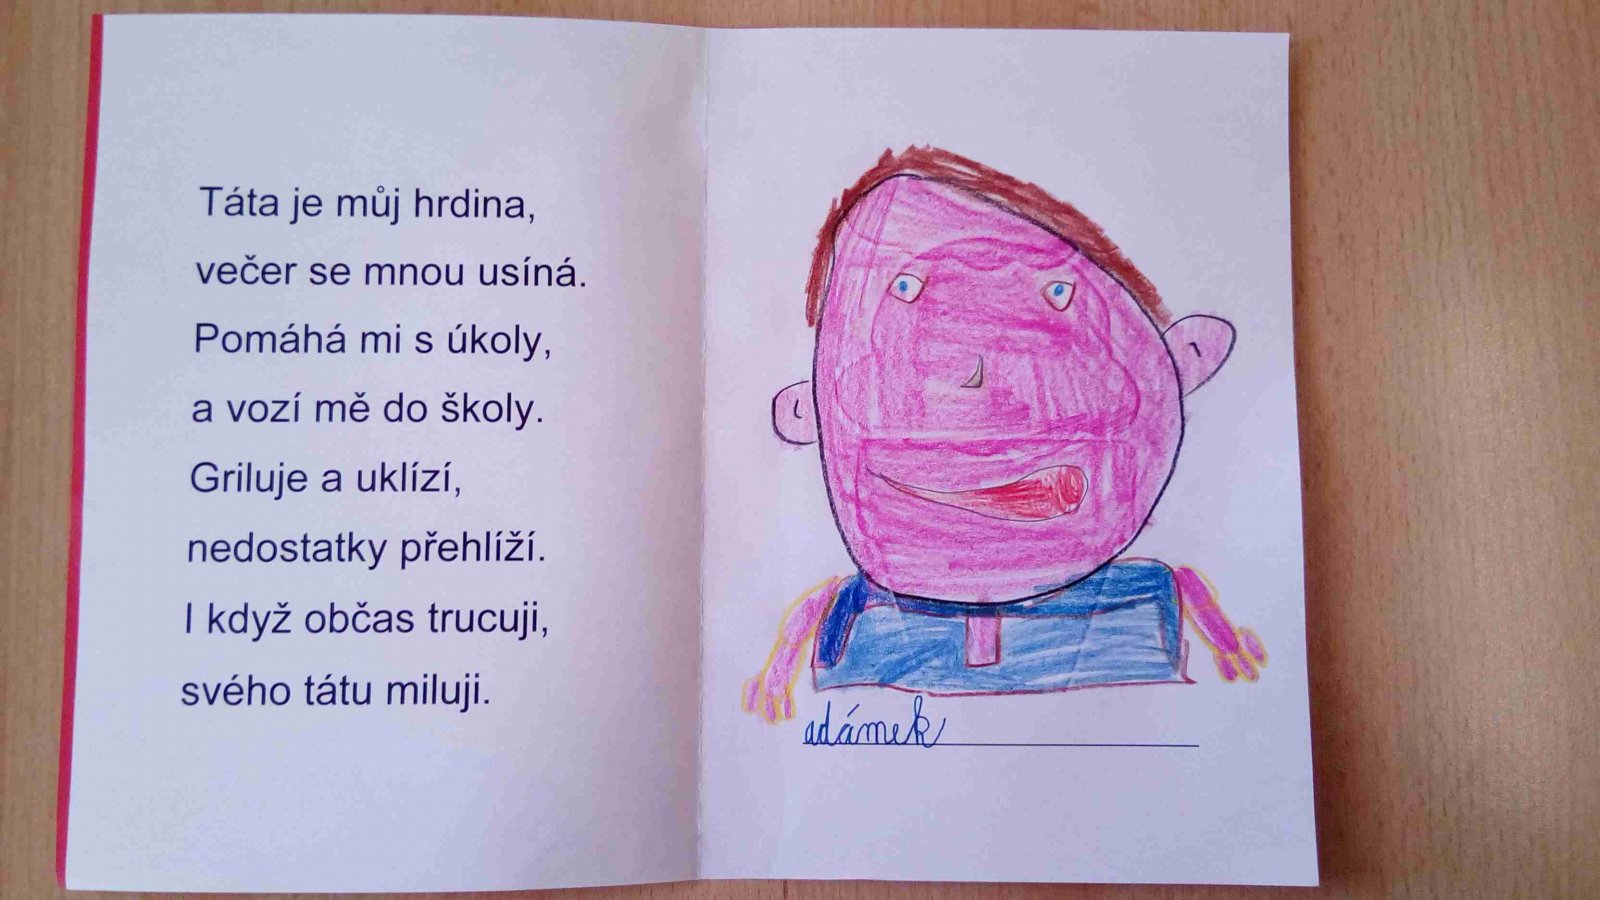 Táta je můj hrdina,
večer se mnou usíná.
Pomáhá mi s úkoly,
a vozí mě do školy.
Griluje a uklízí,
nedostatky přehlíží.
I když občas trucuji,
svého tátu miluji.
adámek